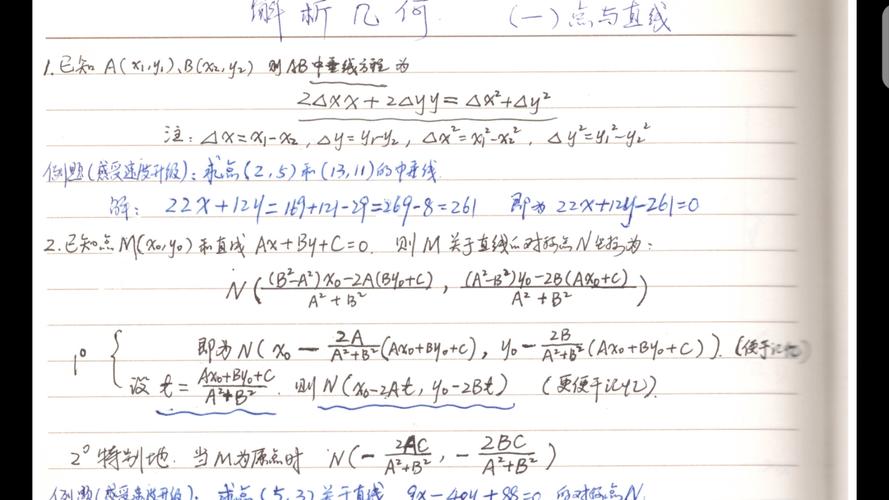 解析几何 (一)点与直线
1.已知 A(x₁,y₁)、B(x₂,y₂) 则AB中垂线方程为
2△x x + 2△y y = △x²+△y²
注: △x=x₁-x₂, △y=y₁-y₂, △x²=x₁²-x₂², △y²=y₁²-y₂²
例题(感受速度升级): 求点(2,5)和(13,11)的中垂线.
解: 22x+12y=169+121-29=269-8=261 即为 22x+12y-261=0
2.已知点M(x₀,y₀)和直线 Ax+By+C=0. 则M关于直线的对称点N坐标为:
N((B²-A²)x₀-2A(By₀+C)/A²+B², (A²-B²)y₀-2B(Ax₀+C)/A²+B²)
1° { 即为N(x₀ - 2A/A²+B² (Ax₀+By₀+C), y₀ - 2B/A²+B² (Ax₀+By₀+C)). (便于记忆)
设 t = Ax₀+By₀+C/A²+B². 则N(x₀-2At, y₀-2Bt) (更便于记忆).
2° 特别地. 当M为原点时 N(- 2AC/A²+B², - 2BC/A²+B²)
例题(感受速度升级): 求点(5,3)关于直线 9x-40y+88=0 的对称点N.